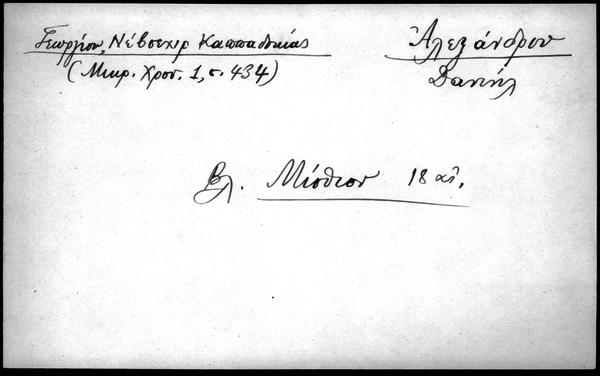 Γεωργίου, Νέβσεχιρ Καππαδοκίας
(Μικρ. Χρον. 1, σ. 434)
Ἀλεξάνδρου
Δανιήλ
Βλ. Μίσθιον 18 αἰ.